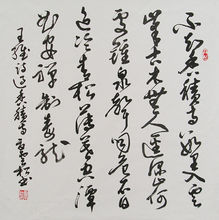 不知香積寺數里入雲
峰古木無人逕深山何
處鐘泉聲咽危石日
色冷青松薄暮空潭
曲安禪制毒龍
王維詩過香積寺